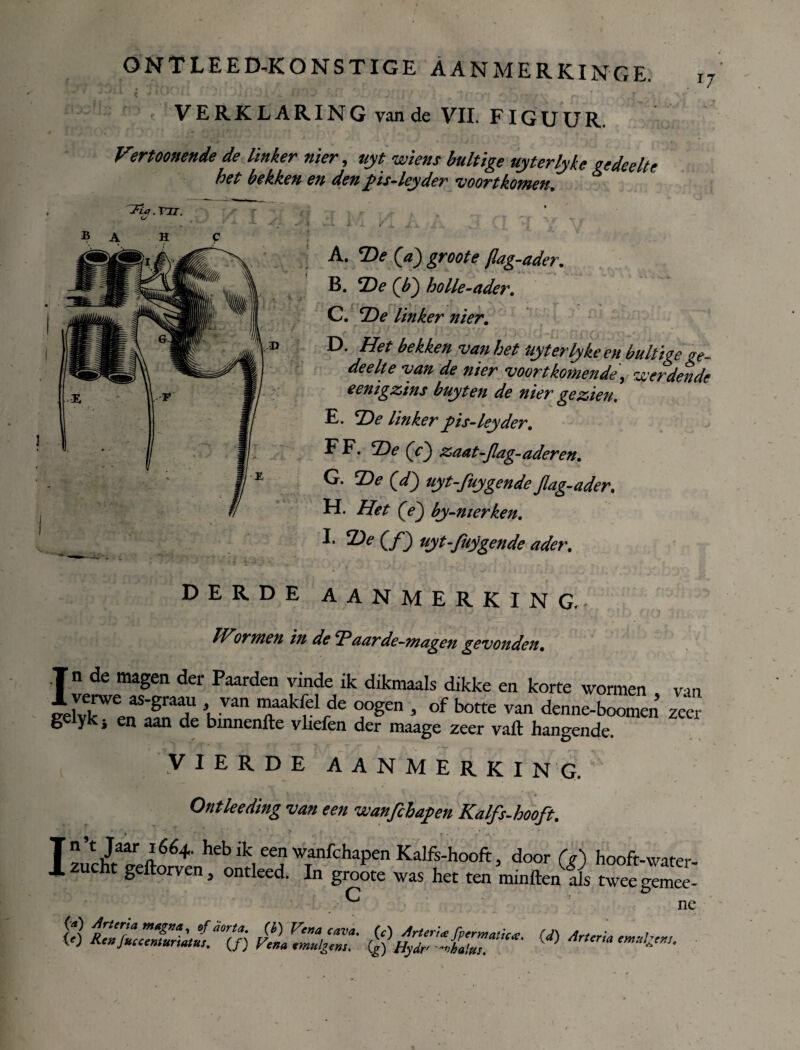 ONTLEED-KONSTIGE AANMERKINGE. 17
VERKLARING van de VII. FIGUUR.
Vertoonende de linker nier, uyt wiens bultige uyterlyke gedeelte
het bekken en den pis-leyder voortkomen.
Fig. VII.
B A H C
I
G
D
E
F
E
A. De (a) groote ſlag-ader.
B. De (b) holle-ader.
C. De linker nier.
D. Het bekken van het uyterlyke en bultige ge-
deelte van de nier voortkomende, werdende
eenigzins buyten de nier gezien.
E. De linker pis-leyder.
FF. De (c) zaat-ſlag-aderen.
G. De (d) uyt-ſuygende ſlag-ader.
H. Het (e) by-nierken.
I. De (f) uyt-ſuygende ader.
DERDE AANMERKING.
Wormen in de Paarde-magen gevonden.
In de magen der Paarden vinde ik dikmaals dikke en korte wormen, van
verwe as-graau, van maakſel de oogen, of botte van denne-boomen zeer
gelyk; en aan de binnenſte vlieſen der maage zeer vaſt hangende.
VIERDE AANMERKING.
Ontleeding van een wanſchapen Kalfs-hooft.
In 't Jaar 1664. heb ik een wanſchapen Kalfs-hooft, door (g) hooft-water-
zucht geſtorven, ontleed. In groote was het ten minſten als twee gemee-
C ne
(a) Arteria magna, of aorta. (b) Vena cava. (c) Arteriæ ſpermaticæ. (d) Arteria emulgens.
(e) Ren ſuccenturiatus. (f) Vena emulgens. (g)